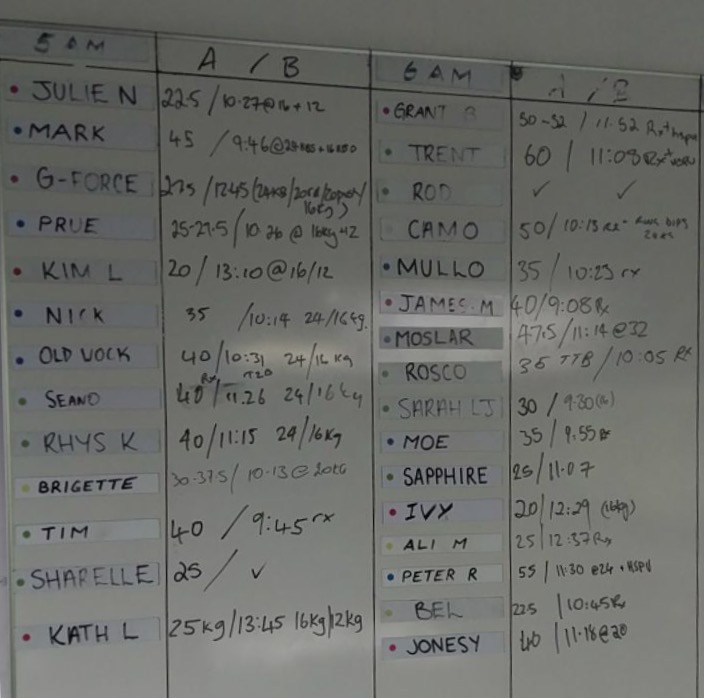 5 AM A / B
JULIE N 22.5 / 10.27@16+12
MARK 45 / 9:46@
G-FORCE 27.5 / 12.45 (24KB/
16kg)
PRUE 25-27.5 / 10.26 @ 16kg+12
KIM L 20 / 13:10 @ 16/12
NICK 35 / 10:14 24/16kg.
OLD VOCK 40/10:31 24/16 kg
SEANO 40 / 11.26 24/16kg
RHYS K 40/11:15 24/16kg
BRIGETTE 30-37.5 / 10.13 @ 20KG
TIM 40 / 9:45 rx
SHARELLE 25 / ✓
KATH L 25kg/13:45 16kg/12kg
6 AM A / B
GRANT B 50-52 / 11.52 Rx+
TRENT 60 / 11:08 Rx+
ROD ✓ ✓
CAMO 50/10:13
MULLO 35 / 10:23 rx
JAMES.M 40/9:08 Rx
MOSLAR 47.5/11:14 @32
ROSCO 35 TTB / 10:05 Rx
SARAH LJ 30 / 9.30(16)
MOE 35 / 9.55 Rx
SAPPHIRE 25/11.07
IVY 20/12:29 (16kg)
ALI M 25/12:37 Rx
PETER R 55 / 11:30 @24 + HSPU
BEL 22.5 / 10:45 Rx
JONESY 40 / 11.18@20